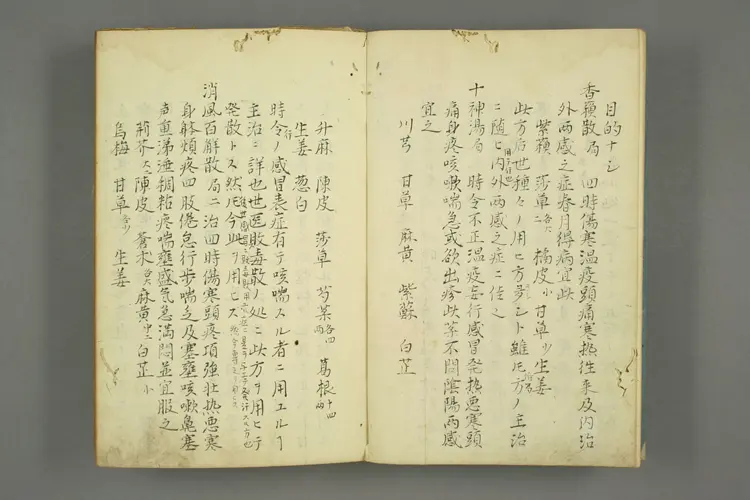 香蘓散局 四時傷寒温疫頭痛寒热徃来及内治
外両感之症春月得病宜此
紫蘓 莎草 橘皮 小 甘草 少 生姜
此方后世種々ノ用ヒ方多シト雖𪜈方ノ主治
ニ随ヒ内外両感之症ニ佳之
十神湯局 時令不正温疫妄行感冒発热悪寒頭
痛身疼咳嗽喘急或欲出疹此等不問陰陽両感
宜之
川芎 甘草 麻黄 紫蘇 白芷
升麻 陳皮 莎草 芍薬 各四両 葛根 十四両
生姜 葱白
時令ノ感冒表症有テ咳喘スル者ニ用ユル
主治ニ詳也世医敗毒散ノ処ニ此方ヲ用ヒテ
発散トス然𪜈今此ヲ用ヒス
消風百解散局ニ治四時傷寒頭疼項強壮热悪寒
身體煩疼四肢倦怠行歩喘乏及寒壅咳嗽鼻塞
声重涕唾稠粘痰喘壅盛气急満悶並宜服之
荊芥 陳皮 蒼朮 麻黄 白芷 小
烏梅 甘草 生姜